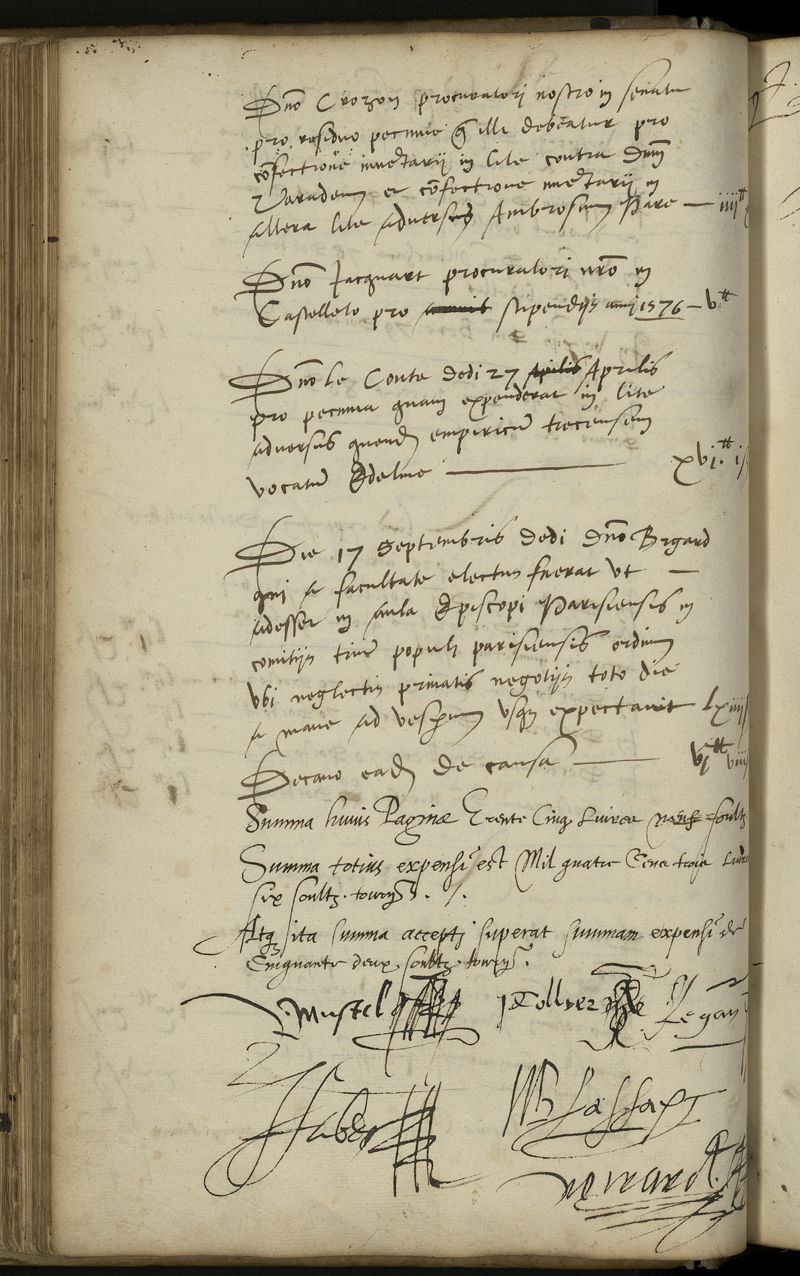 Dno Crozon procuratori nostro in senatu
pro residuo pecunie q̃ illi debeatur pro
cõfectione inuẽtarij in lite contra Dnm̃
Varadeum et cõfectione inuẽtarij in
altera lite aduersus Ambrosium Pare — iiii#
Dno Jacquart procuratori nr̃o in
Castelleto pro stipendijs anni 1576 — v#
Dno le Conte dedi 27 Aprilis
pro pecunia quam expenderat in lite
aduersus quend̃ empiricũ trecensem
vocatũ Edelme — xvi# i
Die 17 septembris dedi dno Bigard
qui a facultate electus fuerat vt —
adesset in aula Episcopi Parisiensis in
comitijs triũ populi parisiensis ordinũ
vbi neglectis priuatis negotijs toto die
a mane ad vesperum vsq̃ expectauit lxiiii
Decano ead̃ de causa — vi# viii
Summa huius Paginæ Trente Cinq Liures neuf soultz
Summa totius expensi est Mil quatre Cens trois Liures
six soultz tourñ.
Atq̃ ita summa accepti superat summam expensi de
Cinquante deux soultz tourñ.